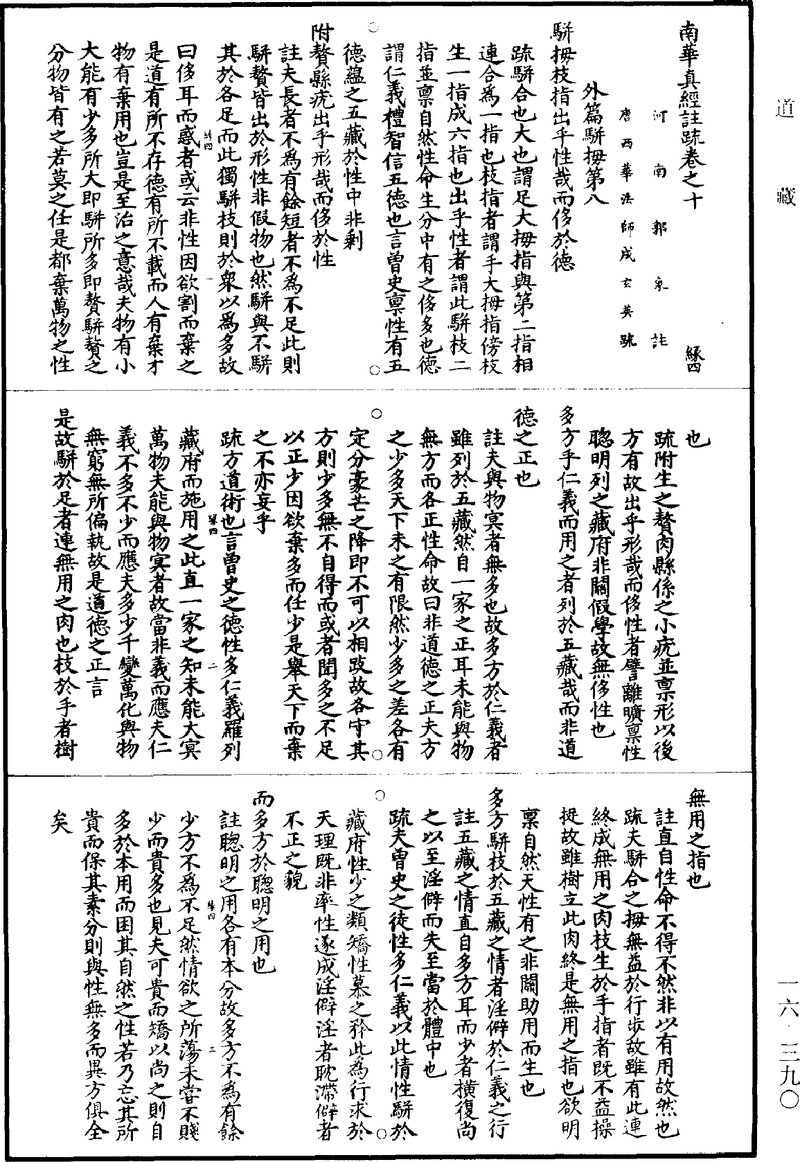 道藏
南華真經註疏卷之十
緣四
河南郭象註
唐西華法師成玄英疏
外篇駢拇第八
駢拇枝指出乎性哉而侈於德
疏駢合也大也謂足大拇指與第二指相
連合為一指也枝指者謂手大拇指傍枝
生一指成六指也出乎性者謂此駢枝二
指並禀自然性命生分中有之侈多也德
謂仁義禮智信五德也言曾史禀性有五
德蘊之五藏於性中非剩
附贅縣疣出乎形哉而侈於性
註夫長者不為有餘短者不為不足此則
駢贅皆出於形性非假物也然駢與不駢
其於各足而此獨駢枝則於衆以為多故
曰侈耳而惑者或云非性因欲割而棄之
是道有所不存德有所不載而人有棄才
物有棄用也豈是至治之意哉夫物有小
大能有少多所大即駢所多即贅駢贅之
分物皆有之若莫之任是都棄萬物之性
也
疏附生之贅肉縣係之小疣並禀形以後
方有故出乎形哉而侈性者譬離曠禀性
聰明列之藏府非關假學故無侈性也
多方乎仁義而用之者列於五藏哉而非道
德之正也
註夫與物冥者無多也故多方於仁義者
雖列於五藏然自一家之正耳未能與物
無方而各正性命故曰非道德之正夫方
之少多天下未之有限然少多之差各有
定分豪芒之降即不可以相跂故各守其
方則少多無不自得而或者聞多之不足
以正少因欲棄多而任少是舉天下而棄
之不亦妄乎
疏方道術也言曾史之德性多仁義羅列
藏府而施用之此直一家之知未能大冥
萬物夫能與物冥者故當非義而應夫仁
義不多不少而應夫多少千變萬化與物
無窮無所偏執故是道德之正言
是故駢於足者連無用之肉也枝於手者樹
無用之指也
註直自性命不得不然非以有用故然也
疏夫駢合之拇無益於行步故雖有此連
終成無用之肉枝生於手指者既不益操
捉故雖樹立此肉終是無用之指也欲明
禀自然天性有之非關助用而生也
多方駢枝於五藏之情者淫僻於仁義之行
註五藏之情直自多方耳而少者橫復尚
之以至淫僻而失至當於體中也
疏夫曾史之徒性多仁義以此情性駢於
藏府性少之類矯性慕之矜此為行求於
天理既非率性遂成淫僻淫者耽滯僻者
不正之貌
而多方於聰明之用也
註聰明之用各有本分故多方不為有餘
少方不為不足然情欲之所蕩未嘗不賤
少而貴多也見夫可貴而矯以尚之則自
多於本用而困其自然之性若乃忘其所
貴而保其素分則與性無多而異方俱全
矣
一六·三九〇